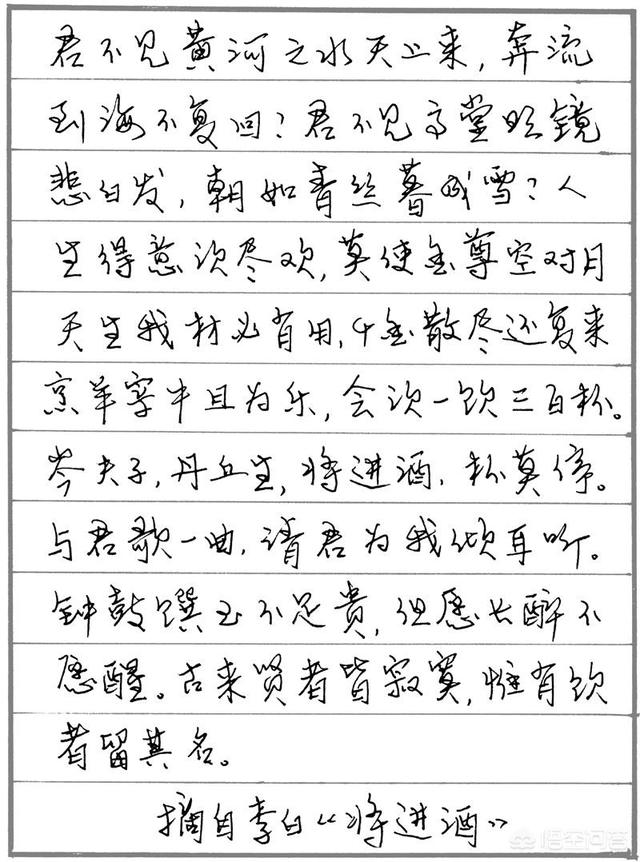 君不见黄河之水天上来，奔流
到海不复回？君不见高堂明镜
悲白发，朝如青丝暮成雪？人
生得意须尽欢，莫使金尊空对月
天生我材必有用，千金散尽还复来
烹羊宰牛且为乐，会须一饮三百杯。
岑夫子，丹丘生，将进酒，杯莫停。
与君歌一曲，请君为我倾耳听。
钟鼓馔玉不足贵，但愿长醉不
愿醒。古来贤者皆寂寞，惟有饮
者留其名。
摘自李白“将进酒”
悟空问答